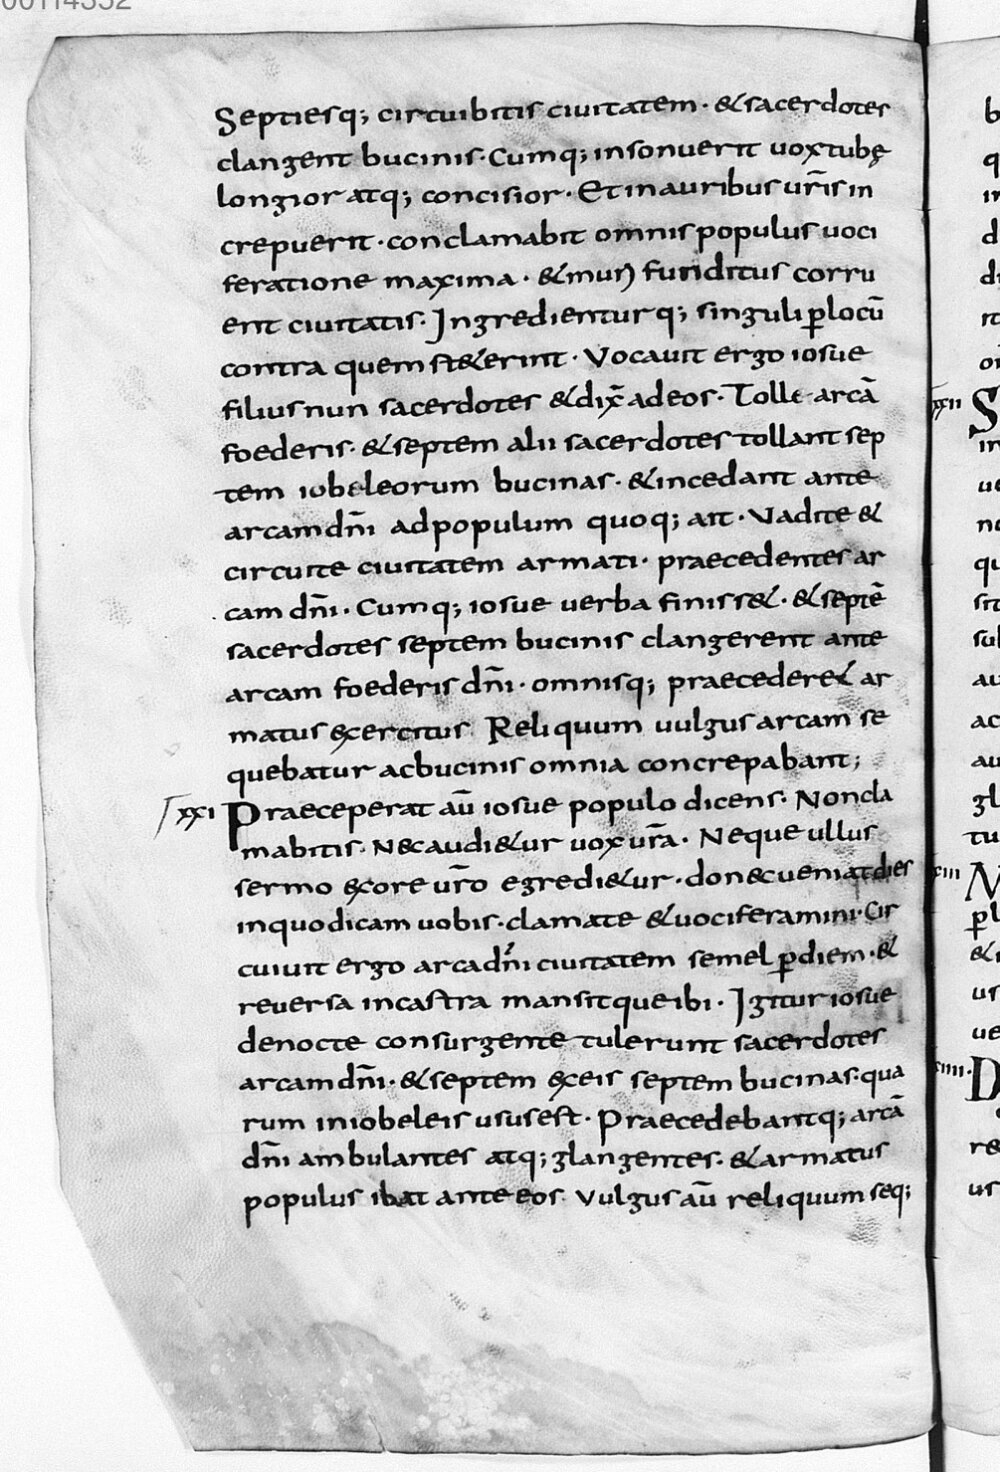 00114352
Septiesq; circuibitis ciuitatem · & sacerdotes
clangent bucinis · Cumq; insonuerit uox tubę
longior atq; concisior · Et in auribus ur̄is in
crepuerit · conclamabit omnis populus uoci
feratione maxima · & muri funditus corru
ent ciuitatis · Ingredienturq; singuli p̱ locū
contra quem st&erint · Vocauit ergo iosue
filius nun sacerdotes & dix̄ ad eos · Tolle arcā
foederis · & septem alii sacerdotes tollant sep
tem iobeleorum bucinas · & incedant ante
arcam dn̄i ad populum quoq; ait · Vadite &
circuite ciuitatem armati · praecedentes ar
cam dn̄i · Cumq; iosue uerba finiss& · & septē
sacerdotes septem bucinis clangerent ante
arcam foederis dn̄i · omnisq; praeceder& ar
matus exercitus Reliquum uulgus arcam se
quebatur ac bucinis omnia concrepabant;
xxi Praeceperat aū iosue populo dicens · Non cla
mabitis · nec audi&ur uox ur̄a · Neque ullus
sermo ex ore ur̄o egredi&ur · donec ueniat dies
in quo dicam uobis · clamate & uociferamini · Cir
cuiuit ergo arca dn̄i ciuitatem semel p̱ diem · &
reuersa in castra mansitque ibi · Igitur iosue
de nocte consurgente tulerunt sacerdotes
arcam dn̄i · & septem ex eis septem bucinas · qua
rum in iobeleis usus est · Praecedebantq; arcā
dn̄i ambulantes atq; glangentes · & armatus
populus ibat ante eos · Vulgus aū reliquum seq;